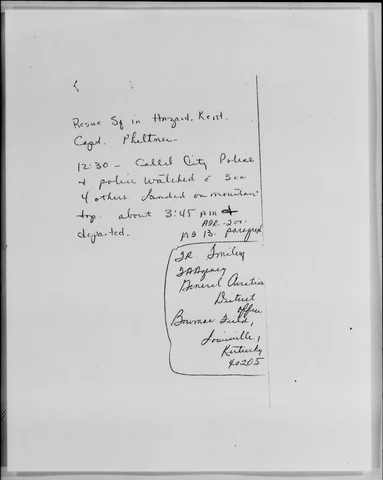 Rescue Sq in Hazard, Kent.
Capt. Pheltner
12:30 - Called City Police
+ police watched
4 others landed on mountain
top. about 3:45 AM
departed.
13. paragraph
Smiley
FA Agency
General Aviation
District
office
Bowman Field,
Louisville,
Kentucky
40205